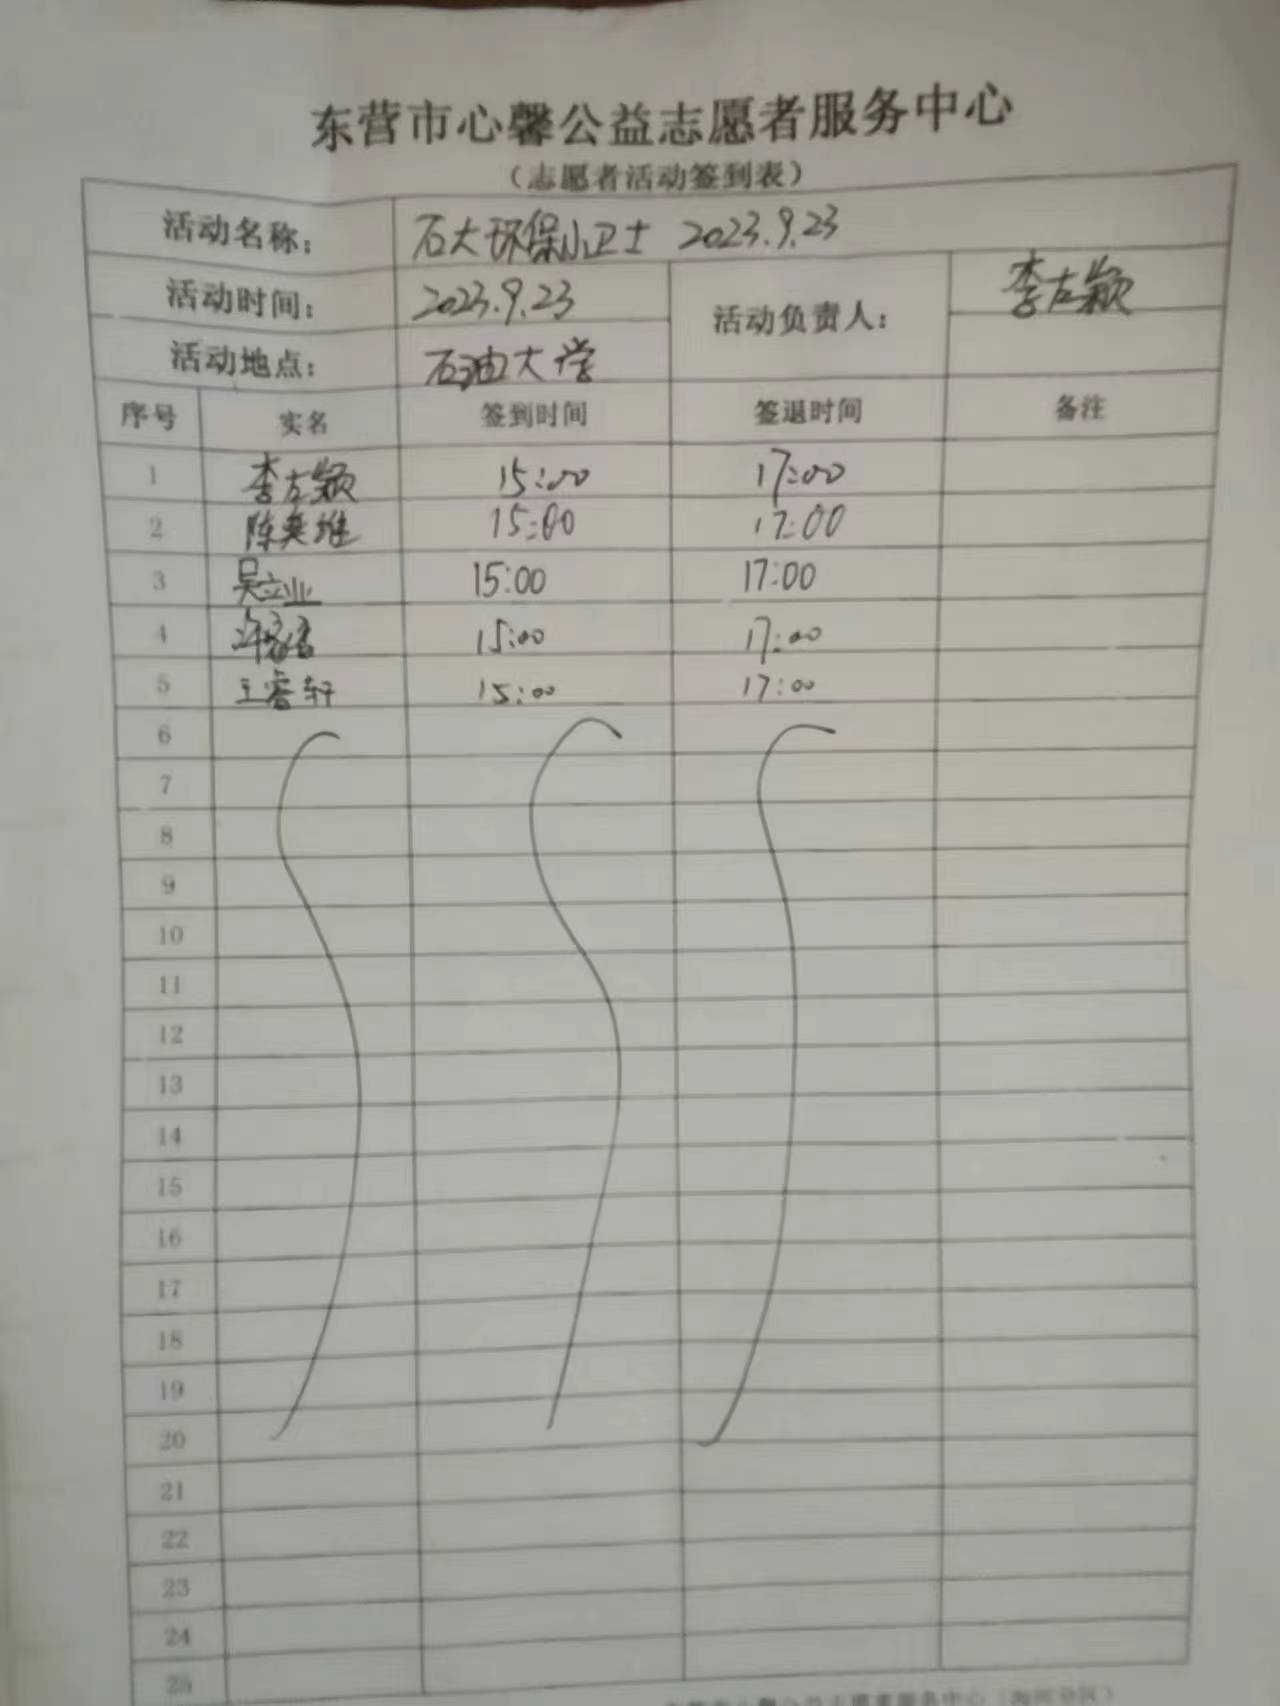 东营市心馨公益志愿者服务中心
（志愿者活动签到表）
活动名称： 石大环保小卫士 2023.9.23
活动时间： 2023.9.23 活动负责人： 李左颖
活动地点： 石油大学
序号 实名 签到时间 签退时间 备注
1 李左颖 15:00 17:00
2 陈奕维 15:00 17:00
3 吴立业 15:00 17:00
4 15:00 17:00
5 王睿轩 15:00 17:00
6
7
8
9
10
11
12
13
14
15
16
17
18
19
20
21
22
23
24
25